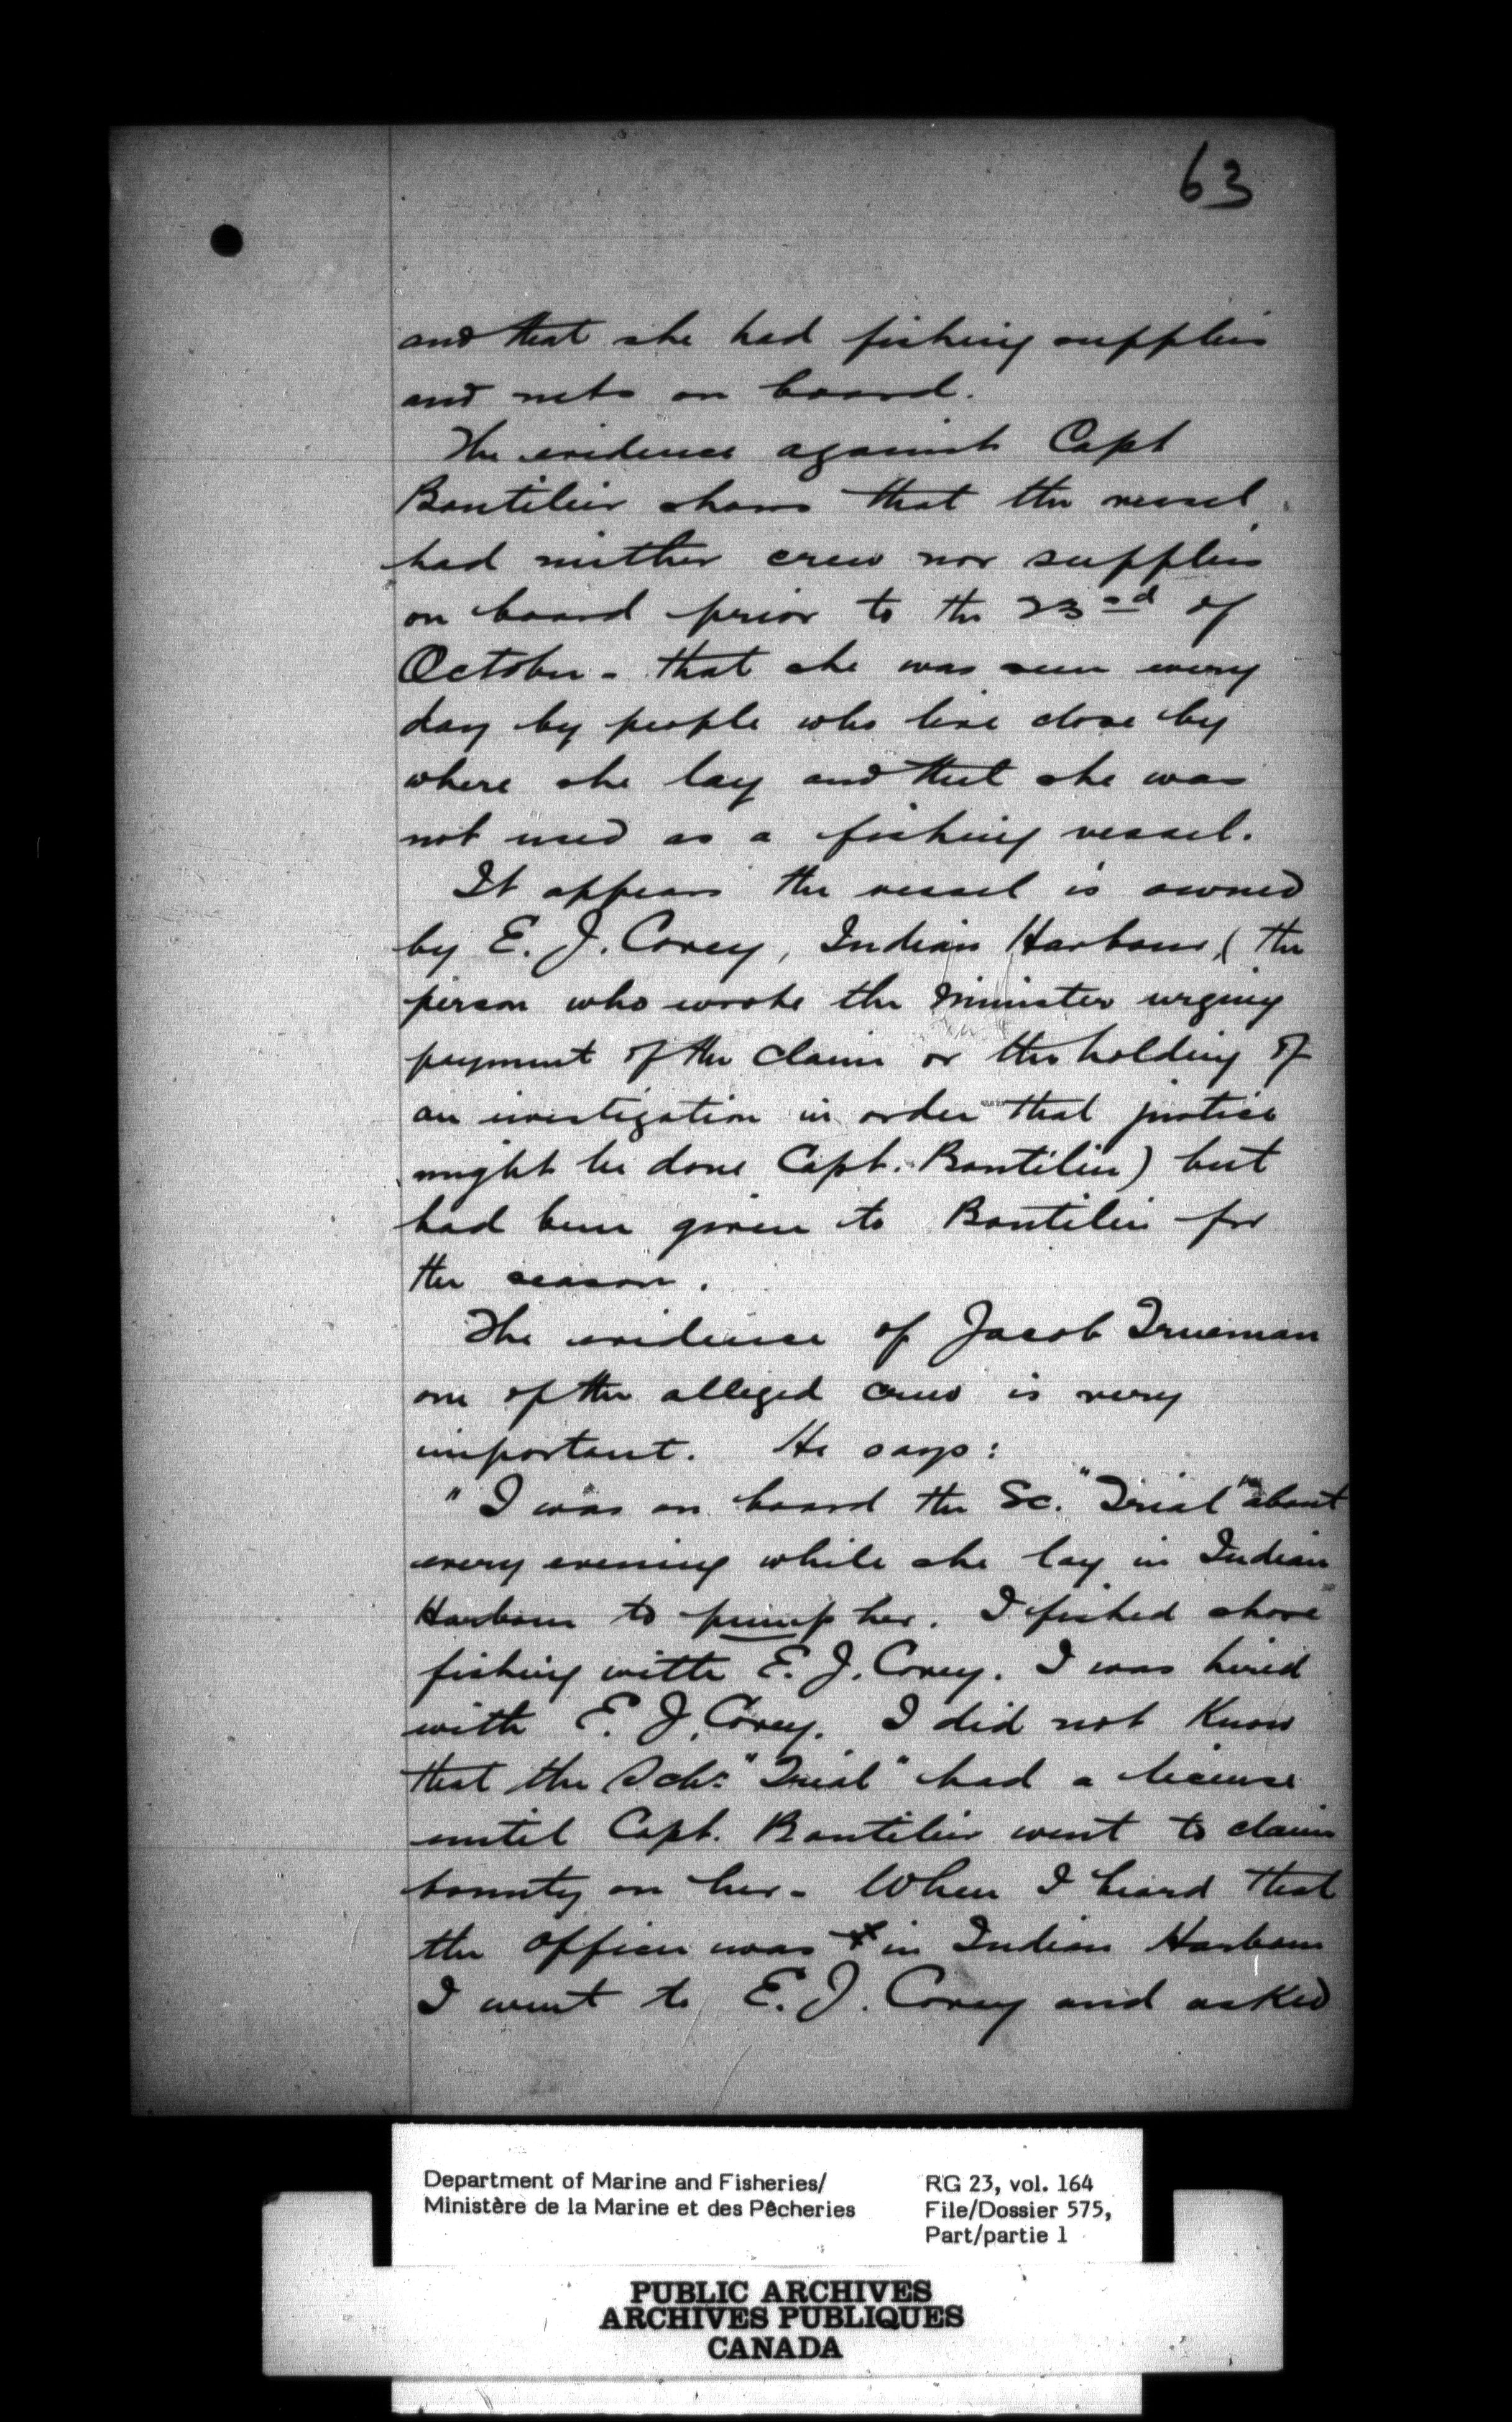 63
and that she had fishing supplies
and nets on board.
The evidence against Capt
Boutilier shows that the vessel
had neither crew nor supplies
on board prior to the 23rd of
October - that she was seen every
day by people who live close by
where she lay and that she was
not used as a fishing vessel.
It appears the vessel is owned
by E. J. Covey, Indian Harbour, (the
person who wrote the Minister urging
payment of the claim or the holding of
an investigation in order that justice
might be done Capt. Boutilier) but
had been given to Boutilier for
the season.
The evidence of Jacob Trueman
one of the alleged crew is very
important. He says:
"I was on board the Sc. "Trial" about
every evening while she lay in Indian
Harbour to pump her. I fished shore
fishing with E. J. Covey. I was hired
with E. J. Covey. I did not know
that the Schr "Trial" had a license
until Capt. Boutilier went to claim
bounty on her - When I heard that
the officer was in Indian Harbour
I went to E. J. Covey and asked
Department of Marine and Fisheries/
Ministère de la Marine et des Pêcheries
RG 23, vol. 164
File/Dossier 575,
Part/partie 1
PUBLIC ARCHIVES
ARCHIVES PUBLIQUES
CANADA